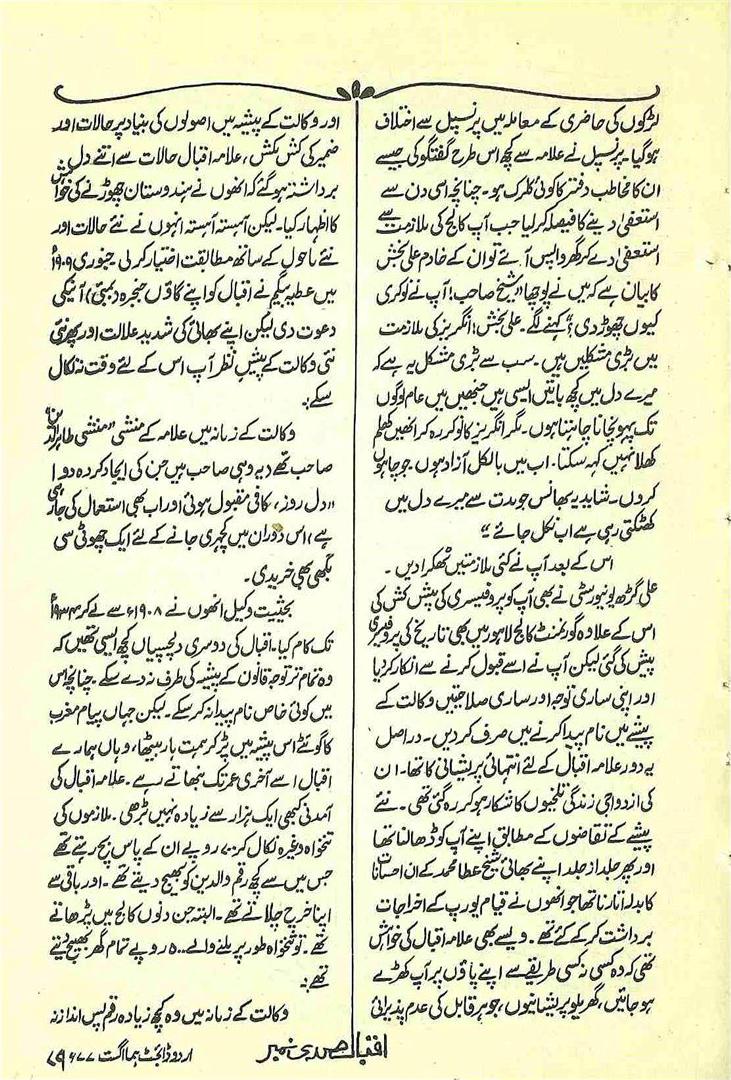 لڑکوں کی حاضری کے معاملہ میں پرنسپل سے اختلاف
ہوگیا۔ پرنسپل نے علامہ سے کچھ اس طرح گفتگو کی جیسے
ان کا مخاطب دفتر کا کوئی کلرک ہو۔ چنانچہ اسی دن سے
استعفیٰ دینے کا فیصلہ کرلیا جب آپ کالج کی ملازمت سے
استعفیٰ دے کر گھر واپس آئے تو ان کے خادم علی بخش
کا بیان ہے کہ میں نے پوچھا "شیخ صاحب! آپ نے نوکری
کیوں چھوڑ دی؟" کہنے لگے۔ علی بخش! انگریز کی ملازمت
میں بڑی مشکلیں ہیں۔ سب سے بڑی مشکل یہ ہے کہ
میرے دل میں کچھ باتیں ایسی ہیں جنھیں میں عام لوگوں
تک پہونچانا چاہتا ہوں۔ مگر انگریز کا نوکر رہ کر انھیں کھلم
کھلا نہیں کہہ سکتا۔ اب میں بالکل آزاد ہوں۔ جو چاہوں
کروں۔ شاید یہ پھانس جو مدت سے میرے دل میں
کھٹکتی رہی ہے اب نکل جائے"
اس کے بعد آپ نے کئی ملازمتیں ٹھکرا دیں۔
علی گڑھ یونیورسٹی نے بھی آپ کو پروفیسری کی پیش کش کی
اس کے علاوہ گورنمنٹ کالج لاہور میں بھی تاریخ کی پروفیسری
پیش کی گئی لیکن آپ نے اسے قبول کرنے سے انکار کردیا
اور اپنی ساری توجہ اور ساری صلاحیتیں وکالت کے
پیشے میں نام پیدا کرنے میں صرف کردیں۔ دراصل
یہ دور علامہ اقبال کے لئے انتہائی پریشانی کا تھا۔ ان
کی ازدواجی زندگی تلخیوں کا شکار ہو کر رہ گئی تھی۔ نئے
پیشے کے تقاضوں کے مطابق اپنے آپ کو ڈھالنا تھا
اور پھر جلد از جلد اپنے بھائی شیخ عطا محمد کے ان احسانات
کا بدلہ اتارنا تھا جو انھوں نے قیام یورپ کے اخراجات
برداشت کرکے کئے تھے۔ ویسے بھی علامہ اقبال کی خواہش
تھی کہ وہ کسی نہ کسی طریقے سے اپنے پاؤں پر آپ کھڑے
ہو جائیں، گھریلو پریشانیوں، جوہر قابل کی عدم پذیرائی
اور وکالت کے پیشہ میں اصولوں کی بنیاد پر حالات اور
ضمیر کی کش مکش، علامہ اقبال حالات سے اتنے دل
برداشتہ ہوگئے کہ انھوں نے ہندوستان چھوڑنے کی خواہش
کا اظہار کیا۔ لیکن آہستہ آہستہ انہوں نے نئے حالات اور
نئے ماحول کے ساتھ مطابقت اختیار کر لی۔ جنوری ۱۹۰۹ء
میں عطیہ بیگم نے اقبال کو اپنے گاؤں جنجرہ (بمبئی) آنیکی
دعوت دی لیکن اپنے بھائی کی شدید علالت اور پھر نئی
نئی وکالت کے پیش نظر آپ اس کے لئے وقت نہ نکال
سکے۔
وکالت کے زمانہ میں علامہ کے منشی "منشی طاہرالدین"
صاحب تھے (یہ وہی صاحب ہیں جن کی ایجاد کردہ دوا
"دل روز" کافی مقبول ہوئی اور اب بھی استعمال کی جارہی
ہے) اس دوران میں کچہری جانے کے لئے ایک چھوٹی سی
بگھی بھی خریدی۔
بحیثیت وکیل انھوں نے ۱۹۰۸ء سے لے کر ۱۹۳۴ء
تک کام کیا۔ اقبال کی دوسری دلچسپیاں کچھ ایسی تھیں کہ
وہ تمام تر توجہ قانون کے پیشہ کی طرف نہ دے سکے۔ چنانچہ اس
میں کوئی خاص نام پیدا نہ کرسکے۔ لیکن جہاں پیام مغرب
کا گوئٹے اس پیشہ میں پڑ کر ہمت ہار بیٹھا، وہاں ہمارے
اقبال اسے آخری عمر تک نبھاتے رہے۔ علامہ اقبال کی
آمدنی کبھی ایک ہزار سے زیادہ نہیں بڑھی۔ ملازموں کی
تنخواہ وغیرہ نکال کر روپے ان کے پاس بچ رہتے تھے
جس میں سے کچھ رقم والدین کو بھیج دیتے تھے۔ اور باقی سے
اپنا خرچ چلاتے تھے۔ البتہ جن دنوں کالج میں پڑھاتے
تھے۔ تو تنخواہ طور پر ملنے والے ۵۰۰ روپے تمام گھر بھیج دیتے
تھے۔
وکالت کے زمانہ میں وہ کچھ زیادہ رقم پس اندازنہ
اقبال صدی نمبر
اردو ڈائجسٹ ہما اگست ۷۷ء ۶۹